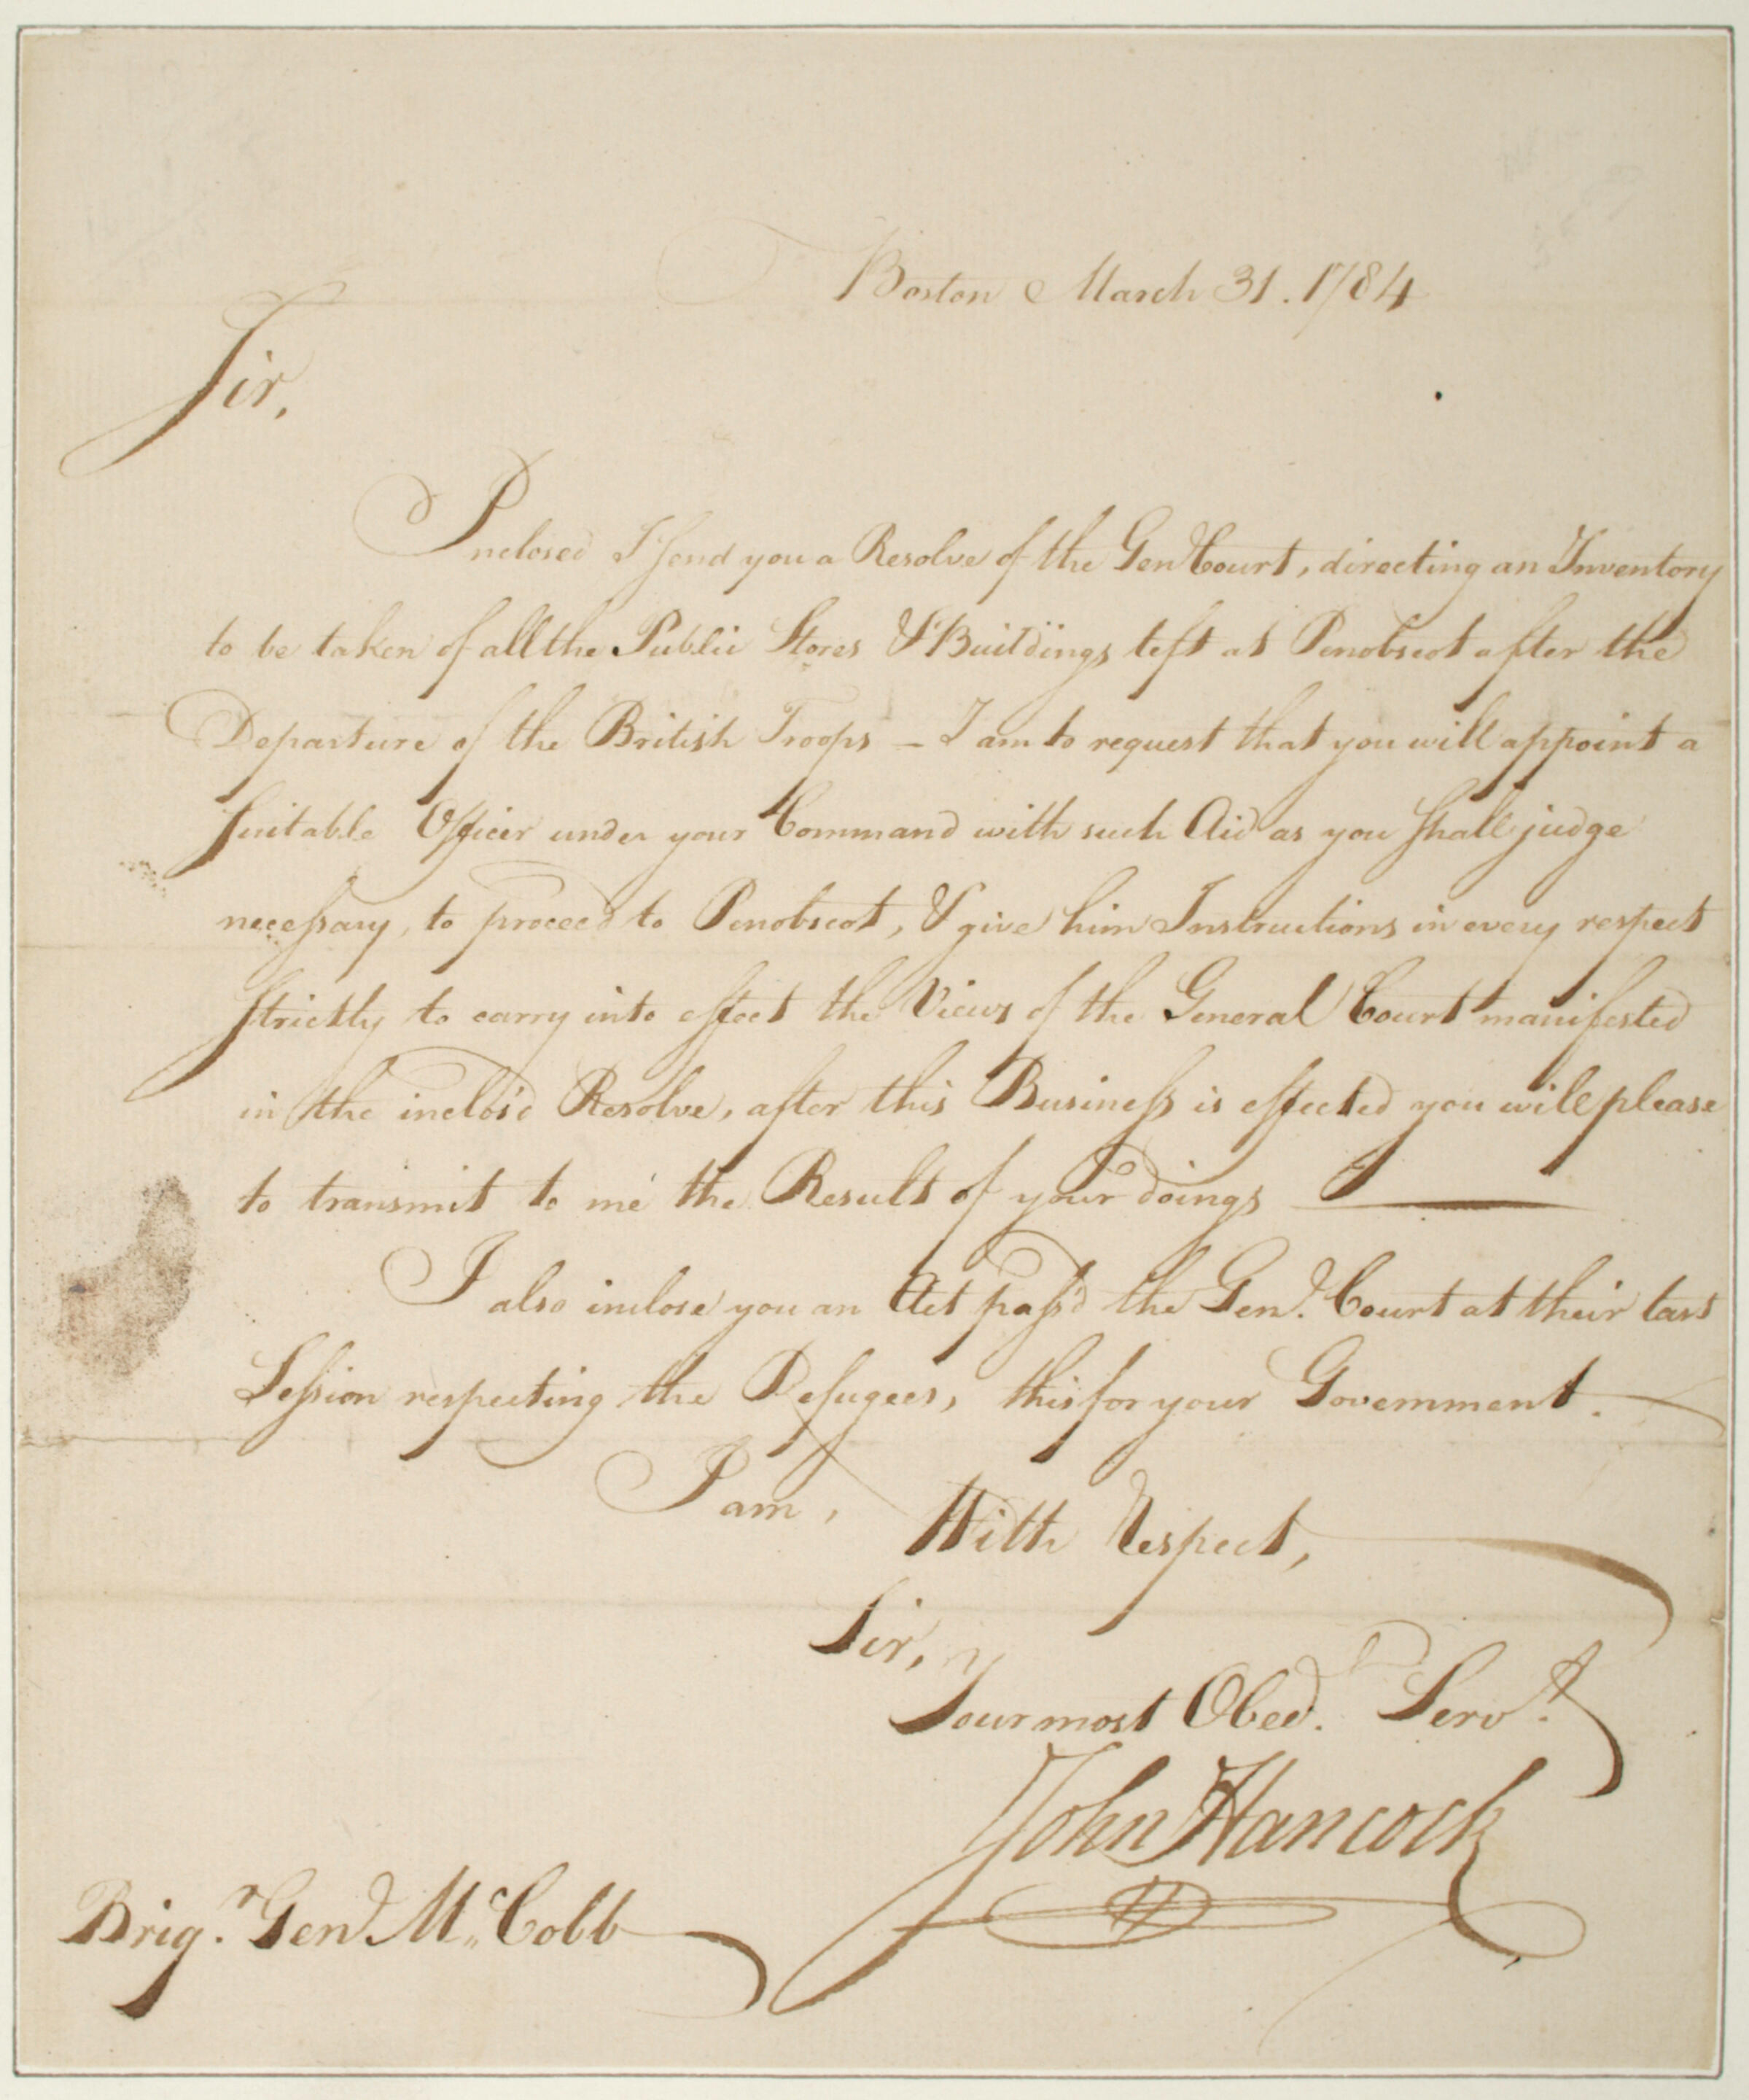 Boston March 31. 1784
Sir,
Inclosed I send you a Resolve of the Genl Court, directing an Inventory
to be taken of all the Public Stores & Buildings left at Penobscot after the
Departure of the British Troops – I am to request that you will appoint a
suitable Officer under your Command with such Aid as you shall judge
necessary, to proceed to Penobscot, & give him Instructions in every respect
strictly to carry into effect the Views of the General Court manifested
in the inclos'd Resolve, after this Business is effected you will please
to transmit to me the Result of your doings —
I also inclose you an Act pass'd the Genl. Court at their last
Session respecting the Refugees, this for your Government.
I am,
With Respect,
Sir,
Your most Obed. Servt.
John Hancock
Brigr. Genl McCobb